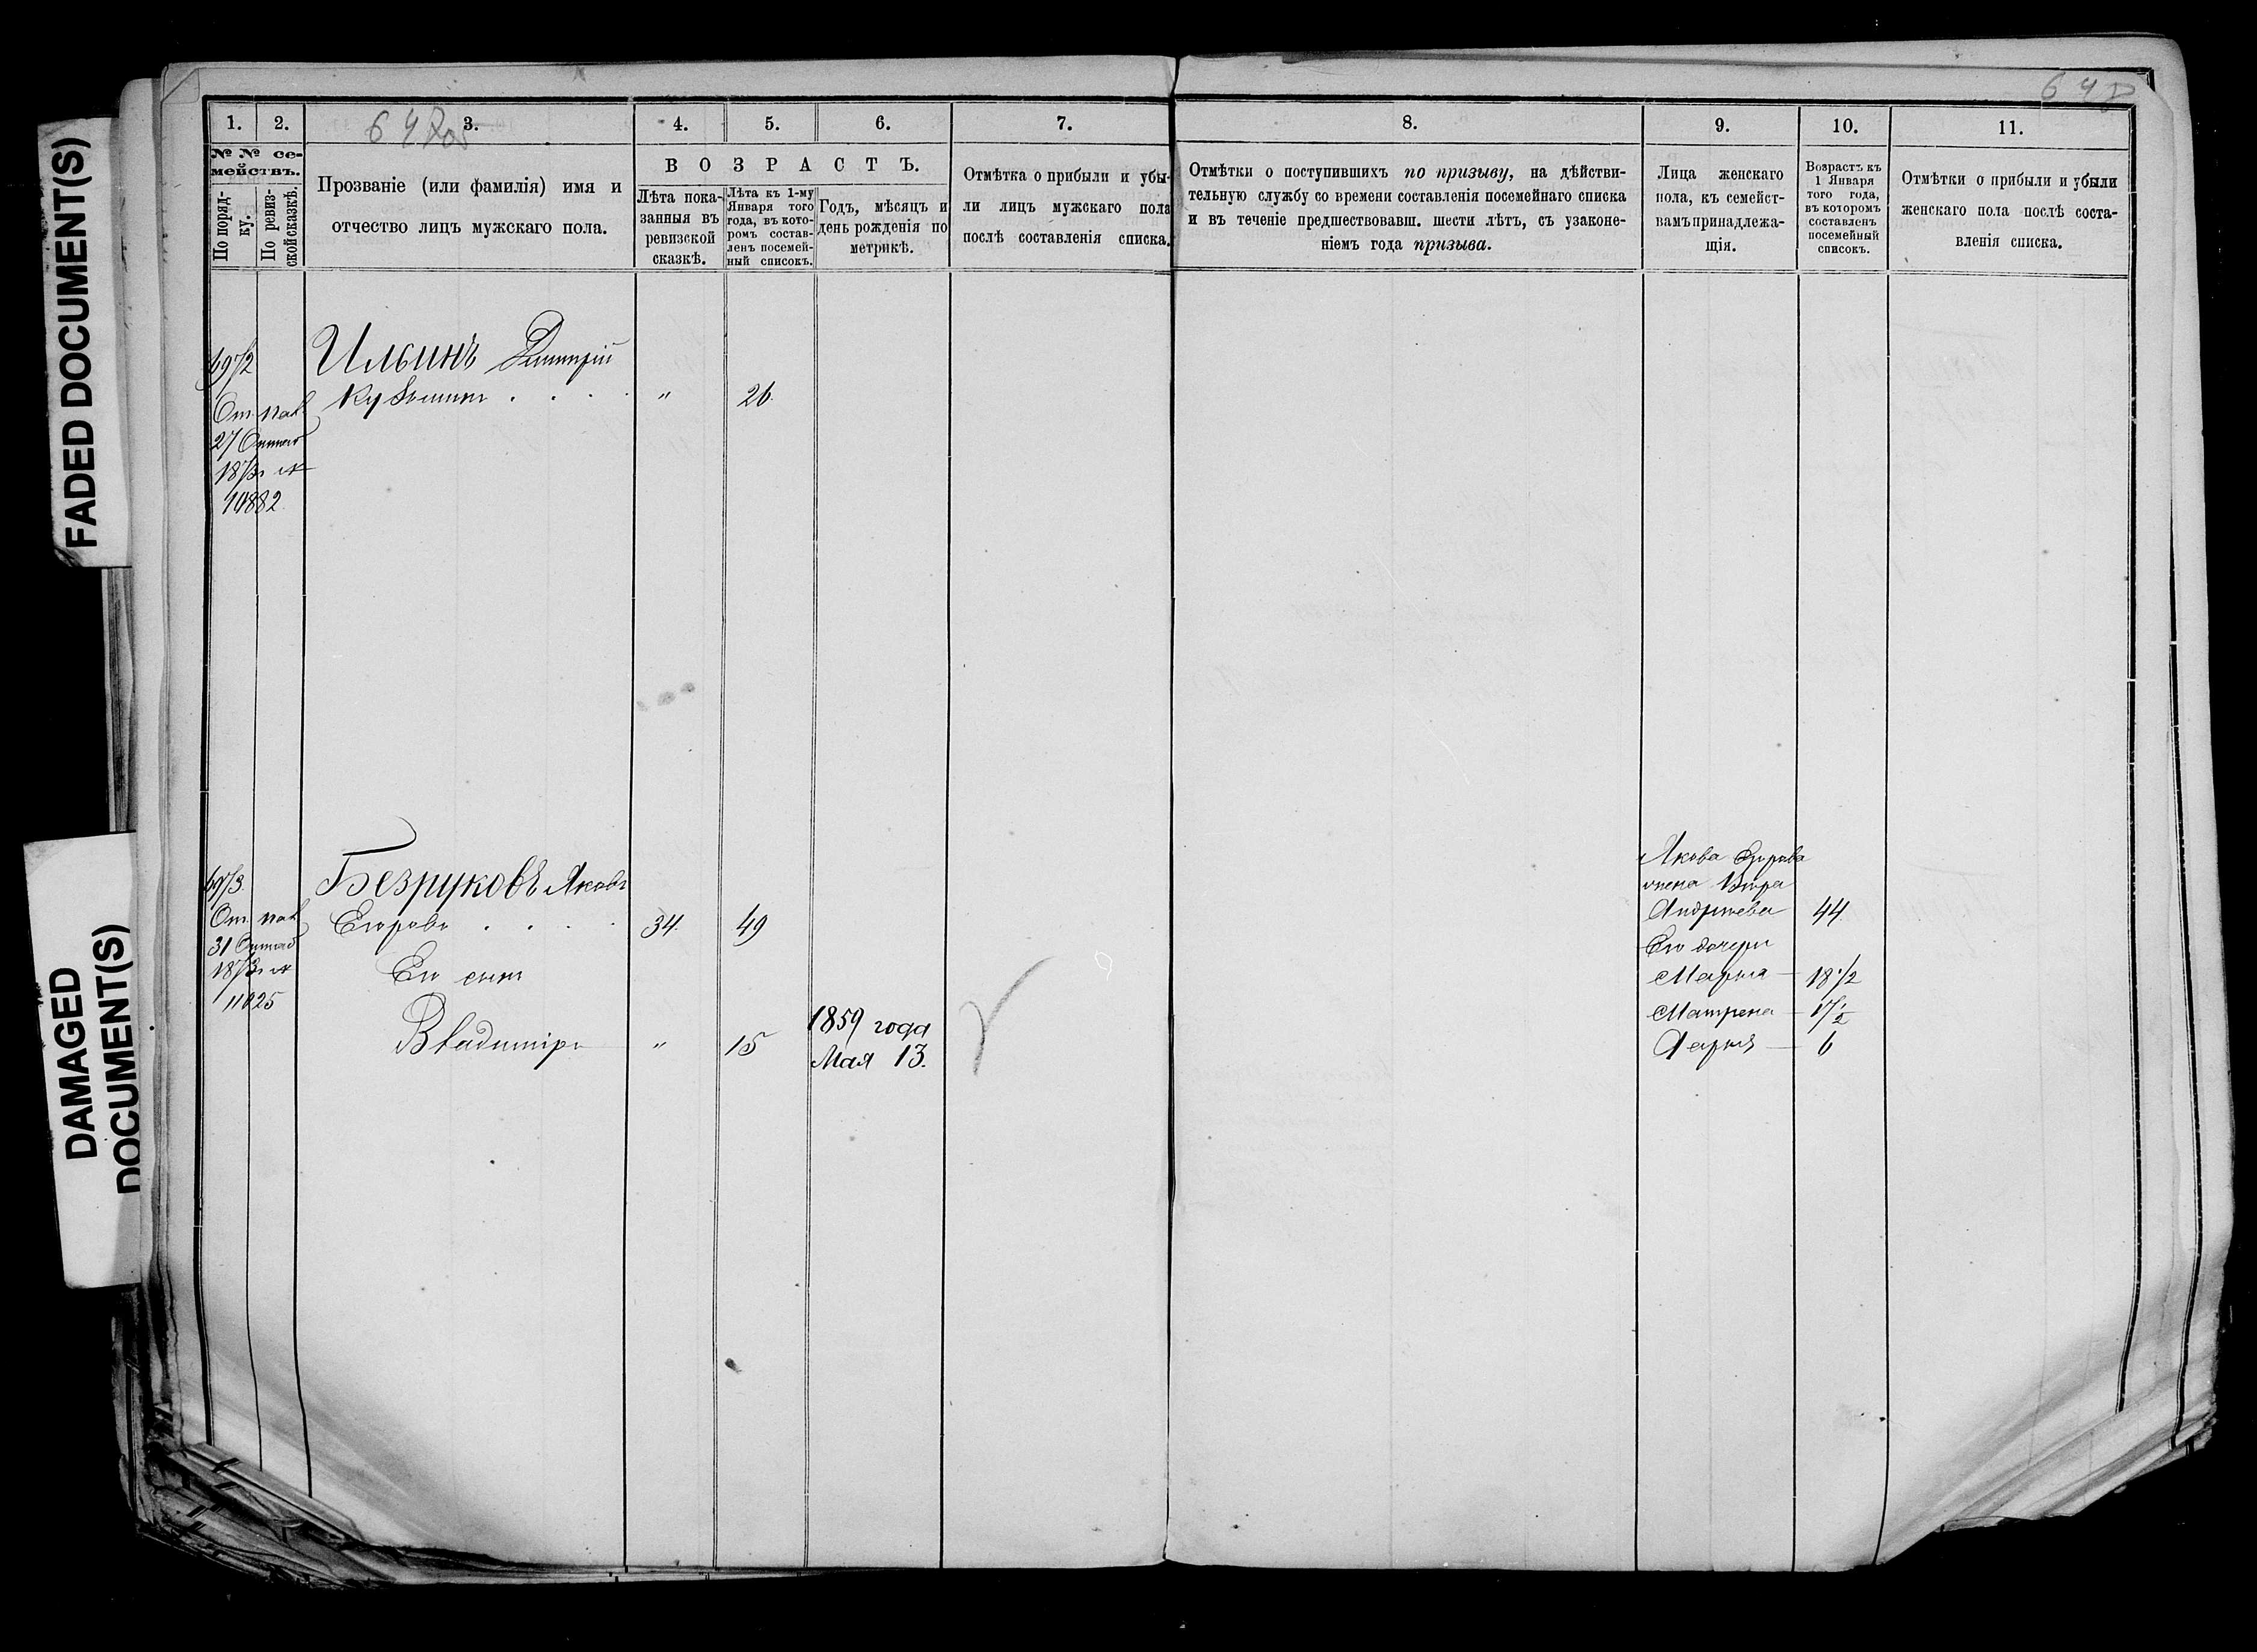 FADED DOCUMENT(S)
DAMAGED
DOCUMENT(S)
64
64
1. 2. 3. 4. 5. 6. 7. 8. 9. 10. 11.
№ № се-
мействъ.
По поряд-
ку.
По ревиз-
ской сказкѣ.
Прозваніе (или фамилія) имя и
отчество лицъ мужскаго пола.
ВОЗРАСТЪ.
Лѣта пока-
занныя въ
ревизской
сказкѣ.
Лѣта къ 1-му
Января того
года, въ кото-
ромъ состав-
ленъ посемей-
ный списокъ.
Годъ, мѣсяцъ и
день рожденія по
метрикѣ.
Отмѣтка о прибыли и убы-
ли лицъ мужскаго пола
послѣ составленія списка.
Отмѣтки о поступившихъ по призыву, на дѣйстви-
тельную службу со времени составленія посемейнаго списка
и въ теченіе предшествовавш. шести лѣтъ, съ узаконе-
ніемъ года призыва.
Лица женскаго
пола, къ семейст-
вамъ принадлежа-
щія.
Возрастъ къ
1 Января
того года,
въ которомъ
составленъ
посемейный
списокъ.
Отмѣтки о прибыли и убыли
женскаго пола послѣ соста-
вленія списка.
6972 Ильинъ Дмитрій
Кузьминъ . . . . " 26
27
10882
6973 Безруковъ Яковъ
Егоровъ . . . . 34 49
31
11025
Его сынъ
Владиміръ " 15 1859 года
Мая 13.
Якова Егорова
жена Вѣра
Андреева 44
Его дочери
Марья 18 1/2
Матрена 17 1/2
Дарья 6